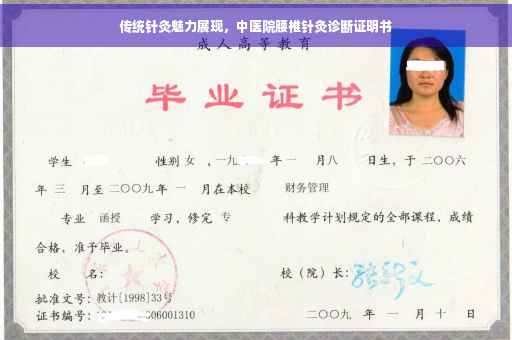 传统针灸魅力展现，中医院腰椎针灸诊断证明书
成人高等教育
毕业证书
学生 性别 女 ，一九 年 一 月八 日生，于 二〇〇六
年 三 月至 二〇〇九 年 一 月在本校 财务管理
专业 函授 学习，修完 专 科教学计划规定的全部课程，成绩
合格，准予毕业。
校 名： 校（院）长：
批准文号：教计[1998]33号
证书编号： 06001310 二〇〇九 年 一 月 十 日